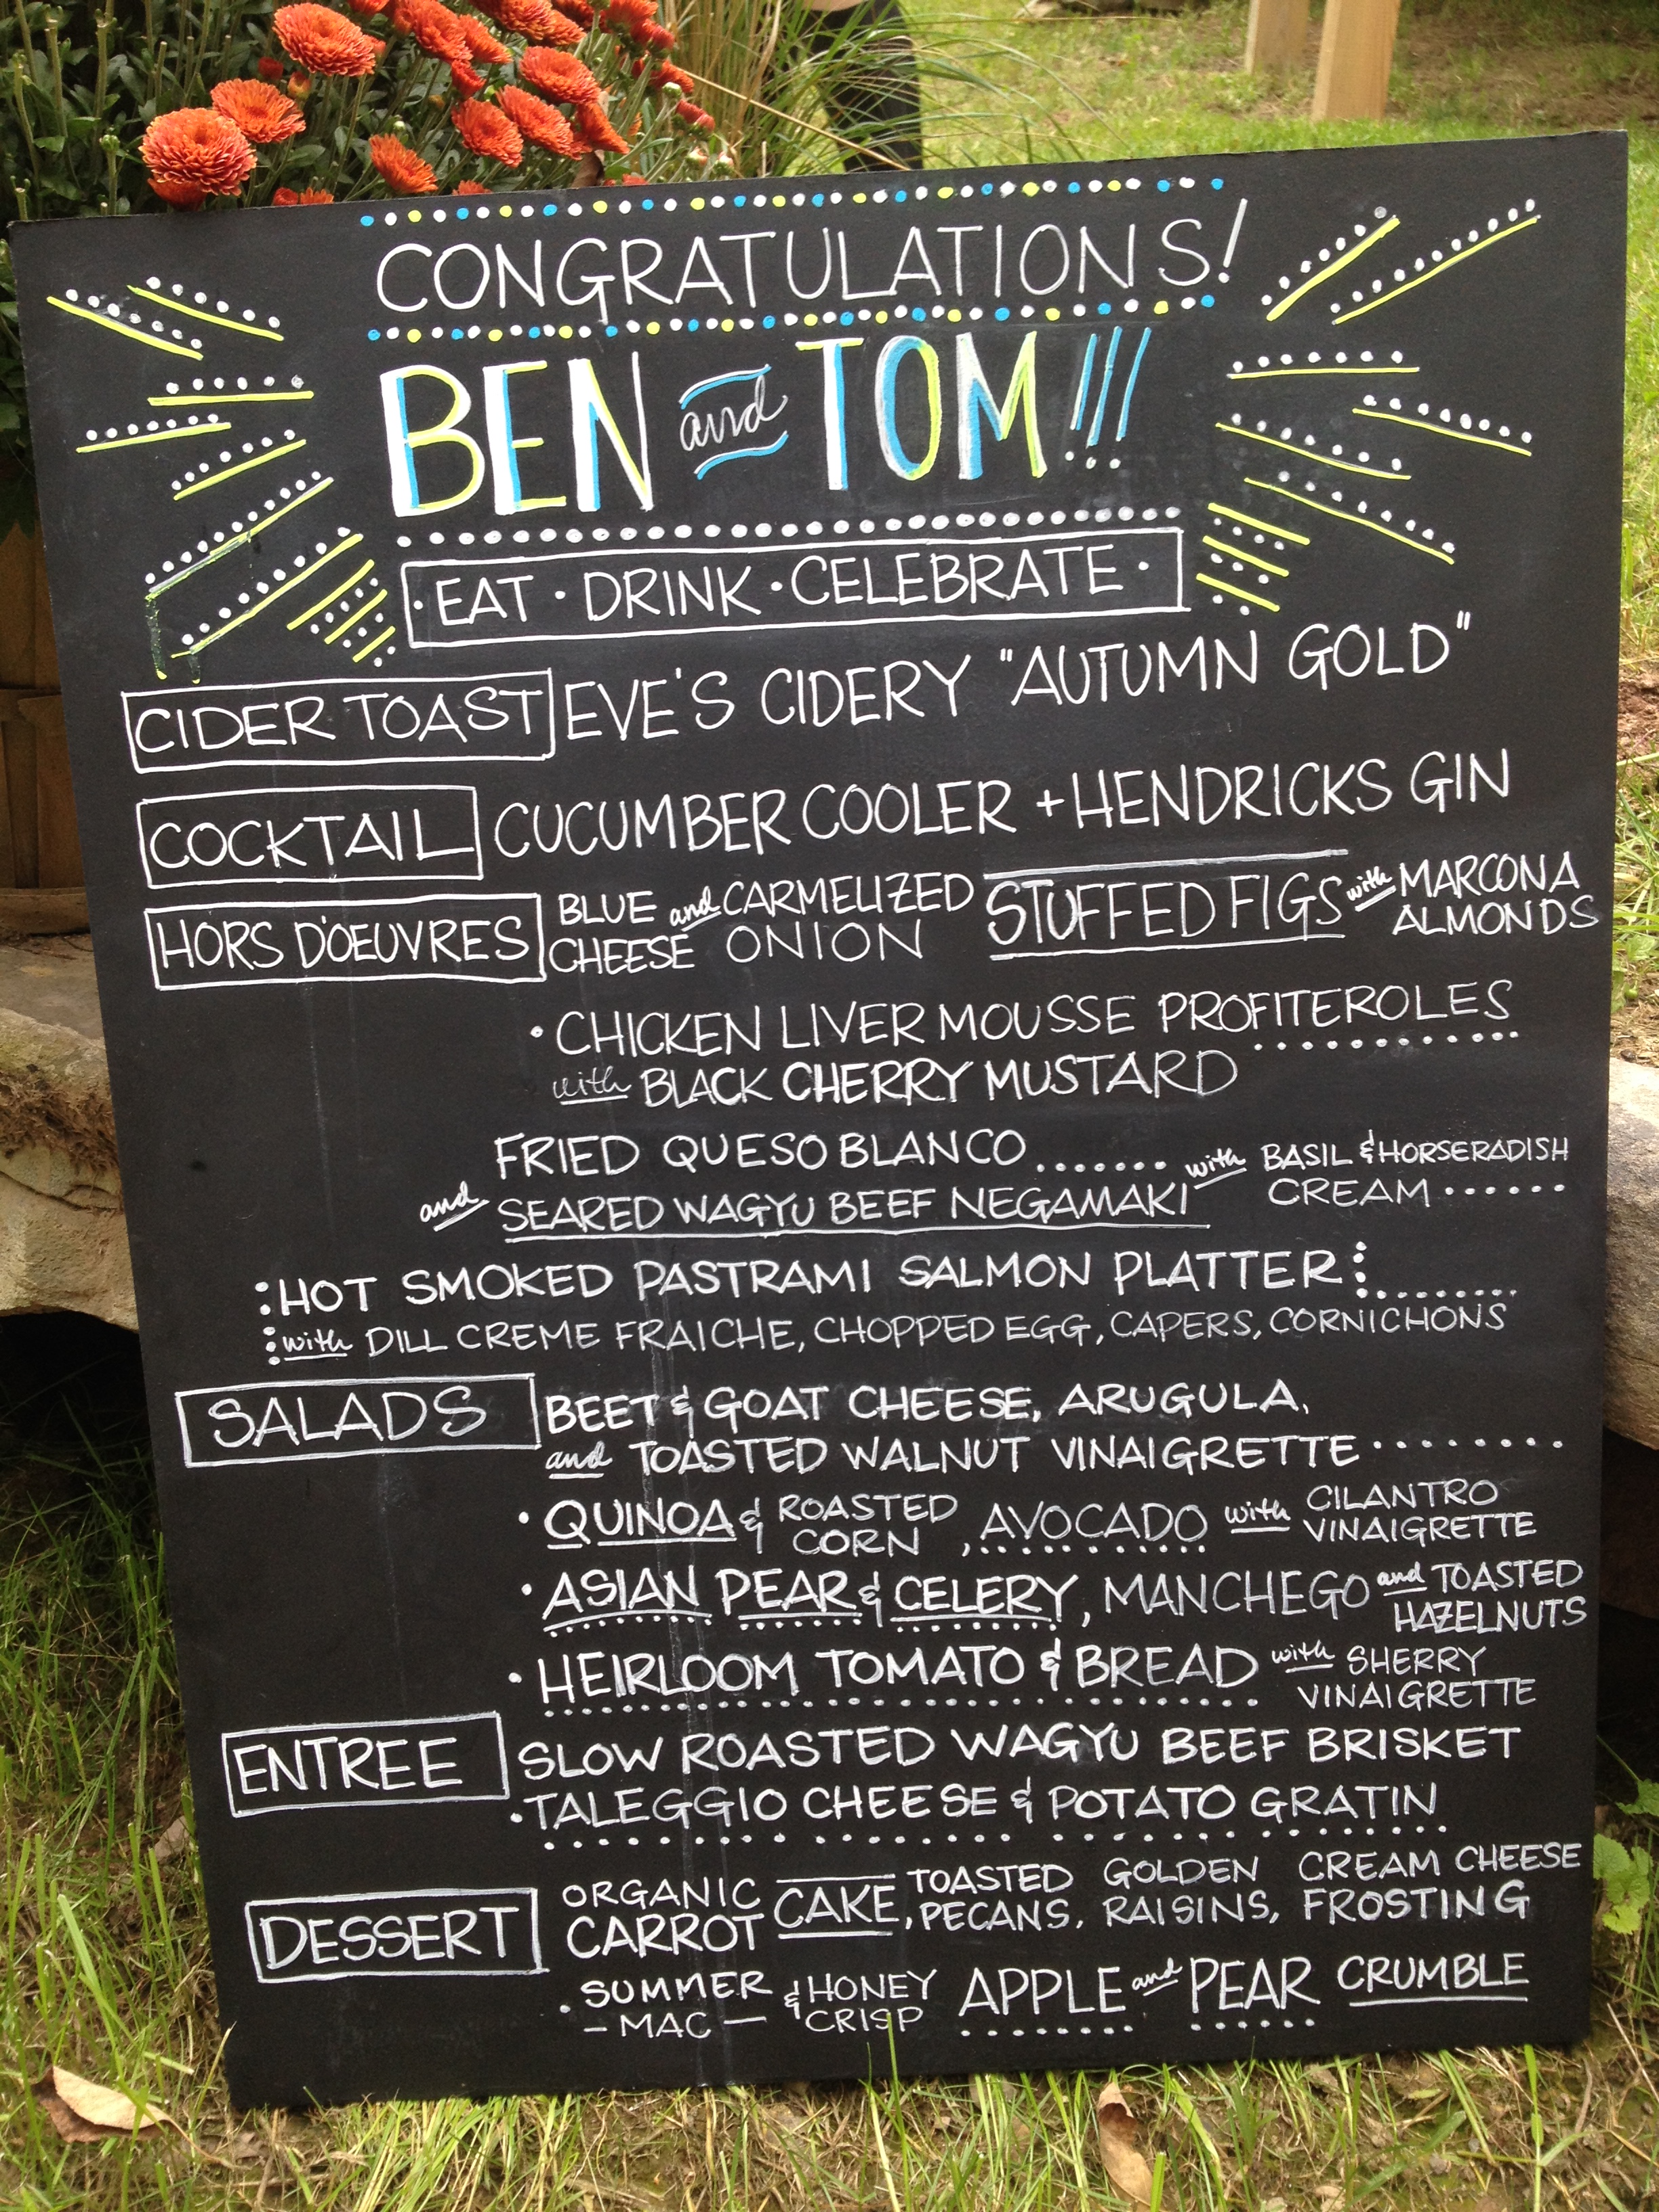 CONGRATULATIONS!
BEN and TOM!!!
· EAT · DRINK · CELEBRATE ·
CIDER TOAST EVE'S CIDERY "AUTUMN GOLD"
COCKTAIL CUCUMBER COOLER + HENDRICKS GIN
HORS D'OEUVRES BLUE CHEESE and CARMELIZED ONION STUFFED FIGS with MARCONA ALMONDS
· CHICKEN LIVER MOUSSE PROFITEROLES
with BLACK CHERRY MUSTARD
FRIED QUESO BLANCO
and SEARED WAGYU BEEF NEGAMAKI with BASIL & HORSERADISH CREAM
HOT SMOKED PASTRAMI SALMON PLATTER
with DILL CREME FRAICHE, CHOPPED EGG, CAPERS, CORNICHONS
SALADS BEET & GOAT CHEESE, ARUGULA,
and TOASTED WALNUT VINAIGRETTE
· QUINOA & ROASTED CORN, AVOCADO with CILANTRO VINAIGRETTE
· ASIAN PEAR & CELERY, MANCHEGO and TOASTED HAZELNUTS
· HEIRLOOM TOMATO & BREAD with SHERRY VINAIGRETTE
ENTREE SLOW ROASTED WAGYU BEEF BRISKET
· TALEGGIO CHEESE & POTATO GRATIN
DESSERT ORGANIC CARROT CAKE, TOASTED PECANS, GOLDEN RAISINS, CREAM CHEESE FROSTING
· SUMMER MAC & HONEY CRISP APPLE and PEAR CRUMBLE